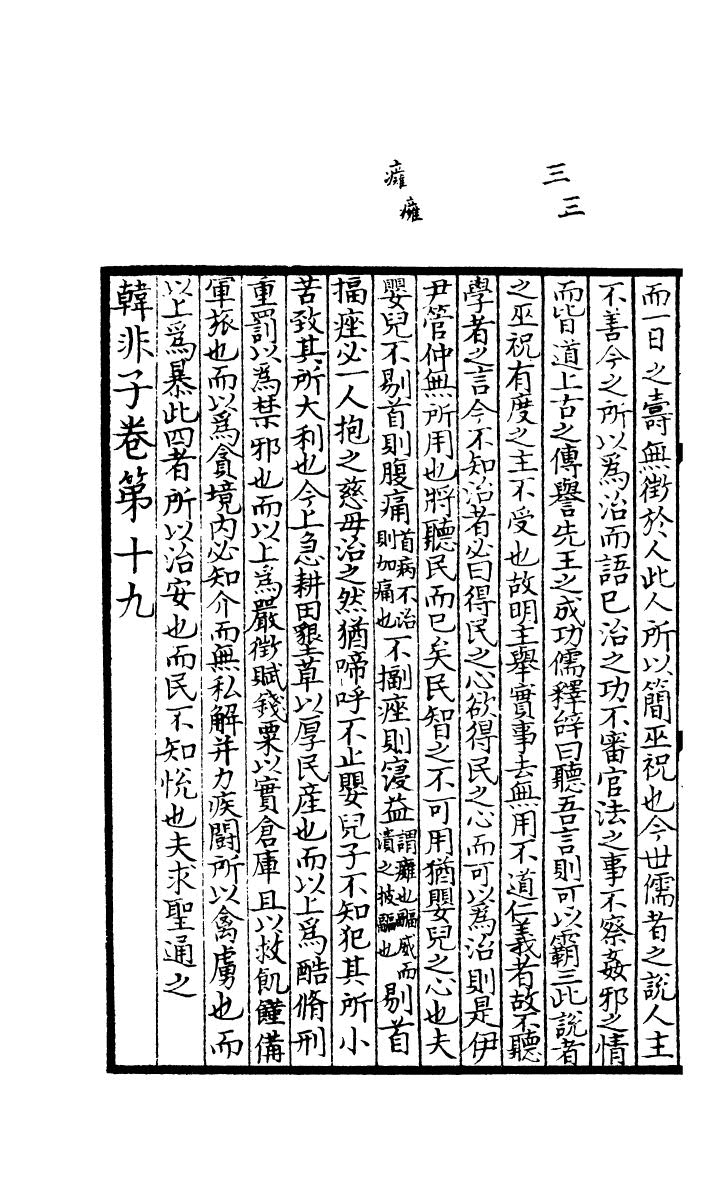 三三
癕癰
而一日之壽無徵於人此人所以簡巫祝也今世儒者之說人主
不善今之所以為治而語已治之功不審官法之事不察姦邪之情
而皆道上古之傳譽先王之成功儒釋辝曰聽吾言則可以霸三此說者
之巫祝有度之主不受也故明主舉實事去無用不道仁義者故不聽
學者之言今不知治者必曰得民之心欲得民之心而可以為治則是伊
尹管仲無所用也將聽民而已矣民智之不可用猶嬰兒之心也夫
嬰兒不剔首則腹痛首病不治則加痛也不揊痤則寖益謂癰也驅威而潰之披驅也剔首
揊痤必一人抱之慈母治之然猶啼呼不止嬰兒子不知犯其所小
苦致其所大利也今上急耕田墾草以厚民産也而以上為酷脩刑
重罰以為禁邪也而以上為嚴徵賦錢粟以實倉庫且以救飢饉備
軍旅也而以為貪境內必知介而無私解并力疾鬬所以禽虜也而
以上為暴此四者所以治安也而民不知悅也夫求聖通之
韓非子卷第十九